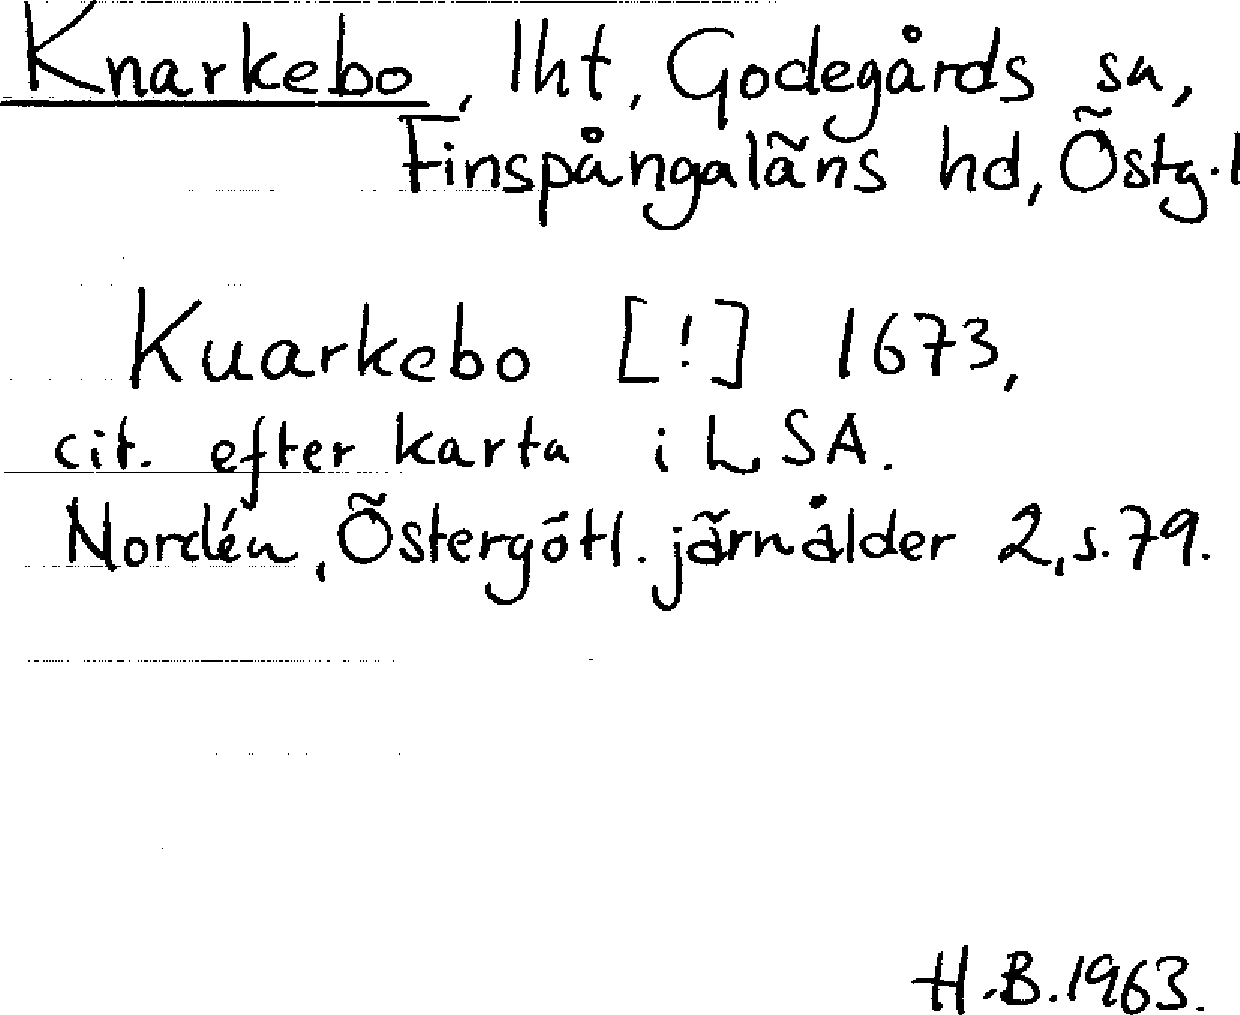 Knarkebo, lht, Godegårds sn,
Finspångaläns hd, Östg.l
Kuarkebo [!] 1673,
cit. efter karta i LSA.
Nordén, Östergötl. järnålder 2, s. 79.
H.B. 1963.